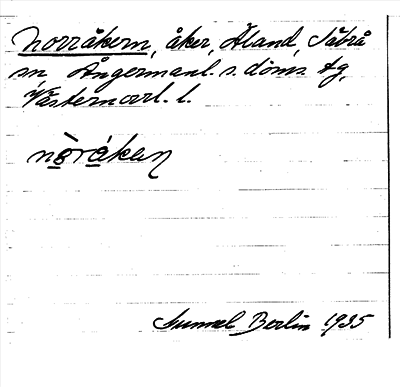 Norråkern, åker, Åland, Säbrå
sn, Ångermanl. s. doms. tg,
Västernorrl. l.
nòråkan
Gunnel Berlin 1935